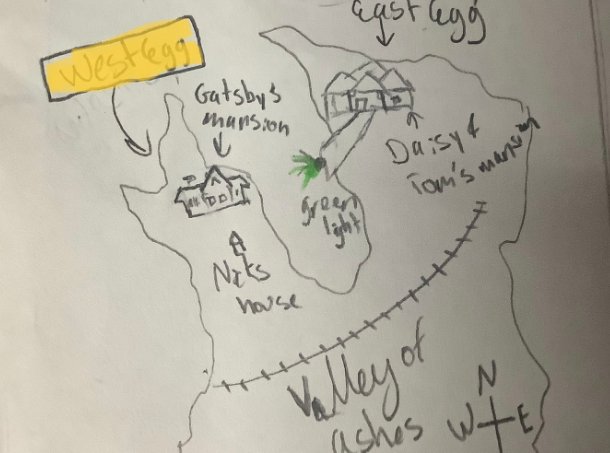 East Egg
West Egg
Gatsby's
mansion
Daisy &
Tom's mansion
green
light
Nik's
house
Valley of
ashes
N
W E